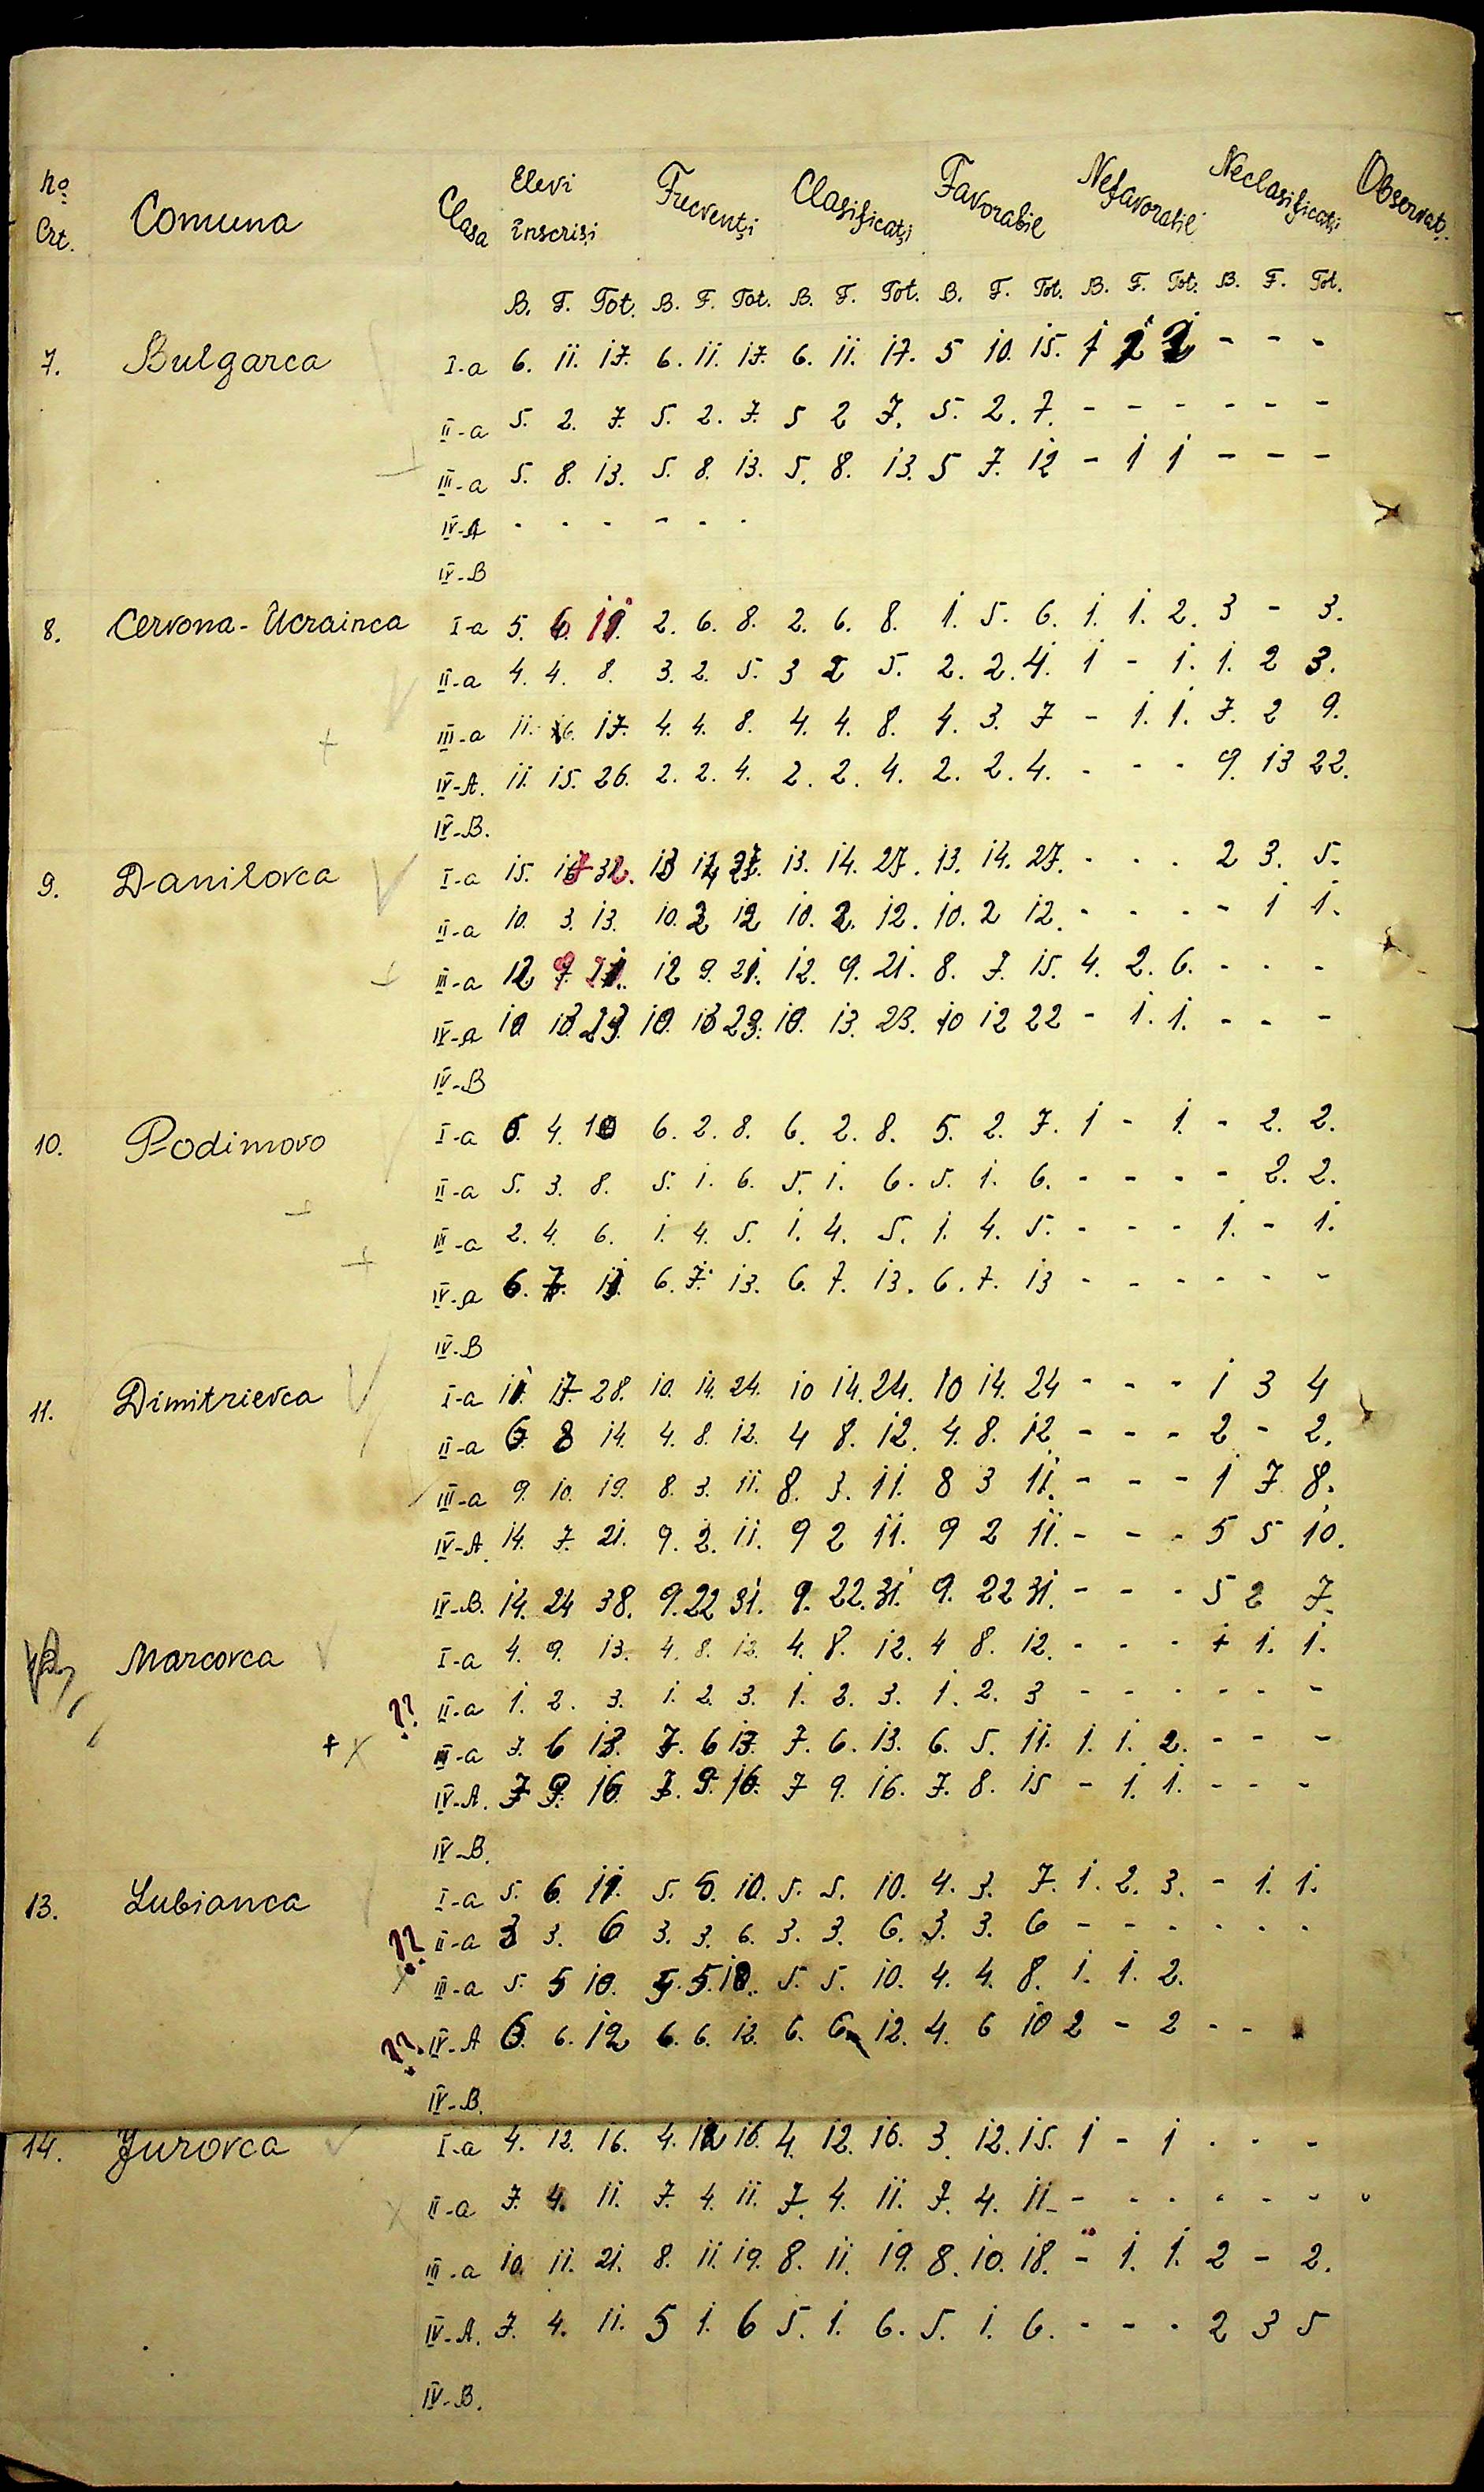 No Crt. Comuna Clasa Elevi înscriși Frecvenți Clasificați Favorabil Nefavorabil Neclasificați Observaț.
B. F. Tot. B. F. Tot. B. F. Tot. B. F. Tot. B. F. Tot. B. F. Tot.
7. Bulgarca I-a 6. 11. 17. 6. 11. 17. 6. 11. 17. 5 10. 15. 1 1 2 - - -
II-a 5. 2. 7. 5. 2. 7. 5 2 7. 5. 2. 7. - - - - - -
III-a 5. 8. 13. 5. 8. 13. 5. 8. 13. 5 7. 12 - 1 1 - - -
IV-A - - - - - -
IV-B
8. Cervona-Ucrainca I-a 5. 6. 11. 2. 6. 8. 2. 6. 8. 1. 5. 6. 1. 1. 2. 3 - 3.
II-a 4. 4. 8. 3. 2. 5. 3 2 5. 2. 2. 4. 1 - 1. 1. 2 3.
III-a 11. 6. 17. 4. 4. 8. 4. 4. 8. 4. 3. 7 - 1. 1. 7. 2 9.
IV-A. 11. 15. 26. 2. 2. 4. 2. 2. 4. 2. 2. 4. - - - 9. 13 22.
IV-B.
9. Danilovca I-a 15. 17 32. 13 14 27. 13. 14. 27. 13. 14. 27. - - - 2 3. 5.
II-a 10. 3. 13. 10. 2 12 10. 2. 12. 10. 2 12. - - - - 1 1.
III-a 12 9. 21. 12 9. 21. 12. 9. 21. 8. 7. 15. 4. 2. 6. - - -
IV-a 10 13 23. 10. 13 23. 10. 13. 23. 10 12 22 - 1. 1. - - -
IV-B
10. Podimovo I-a 6. 4. 10 6. 2. 8. 6. 2. 8. 5. 2. 7. 1 - 1. - 2. 2.
II-a 5. 3. 8. 5. 1. 6. 5. 1. 6. 5. 1. 6. - - - - 2. 2.
III-a 2. 4. 6. 1. 4. 5. 1. 4. 5. 1. 4. 5. - - - 1. - 1.
IV-a 6. 7. 13. 6. 7. 13. 6. 7. 13. 6. 7. 13 - - - - - -
IV-B
11. Dimitrievca I-a 11. 17 28. 10. 14. 24. 10 14. 24. 10 14. 24 - - - 1 3 4
II-a 6. 8 14. 4. 8. 12. 4 8. 12. 4. 8. 12 - - - 2 - 2.
III-a 9. 10. 19. 8. 3. 11. 8. 3. 11. 8 3 11. - - - 1 7 8.
IV-A. 14. 7. 21. 9. 2. 11. 9 2 11. 9 2 11. - - - 5 5 10.
IV-B. 14. 24 38. 9. 22 31. 9. 22. 31. 9. 22 31. - - - 5 2 7.
Marcovca I-a 4. 9. 13. 4. 8. 12. 4. 8. 12. 4 8. 12. - - - + 1. 1.
?? II-a 1. 2. 3. 1. 2. 3. 1. 2. 3. 1. 2. 3 - - - - - -
+ x III-a 7. 6 13. 7. 6 13. 7. 6. 13. 6. 5. 11. 1. 1. 2. - - -
IV-A. 7 9. 16. 7. 9. 16. 7 9. 16. 7. 8. 15 - 1. 1. - - -
IV-B.
13. Lubianca I-a 5. 6. 11. 5. 5. 10. 5. 5. 10. 4. 3. 7. 1. 2. 3. - 1. 1.
?? II-a 3 3. 6 3. 3. 6. 3. 3. 6. 3. 3. 6 - - - - - -
x III-a 5. 5 10. 5. 5. 10. 5. 5. 10. 4. 4. 8. 1. 1. 2.
?? IV-A 6. 6. 12 6. 6. 12. 6. 6. 12. 4. 6 10 2 - 2 - - -
IV-B.
14. Jurovca I-a 4. 12. 16. 4. 12 16. 4. 12. 16. 3. 12. 15. 1 - 1 - - -
x II-a 7. 4. 11. 7. 4. 11. 7. 4. 11. 7. 4. 11. - - - - - - -
III-a 10. 11. 21. 8. 11. 19. 8. 11. 19. 8. 10. 18. - 1. 1. 2 - 2.
IV-A. 7. 4. 11. 5 1. 6 5. 1. 6. 5. 1. 6. - - - 2 3 5
IV-B.